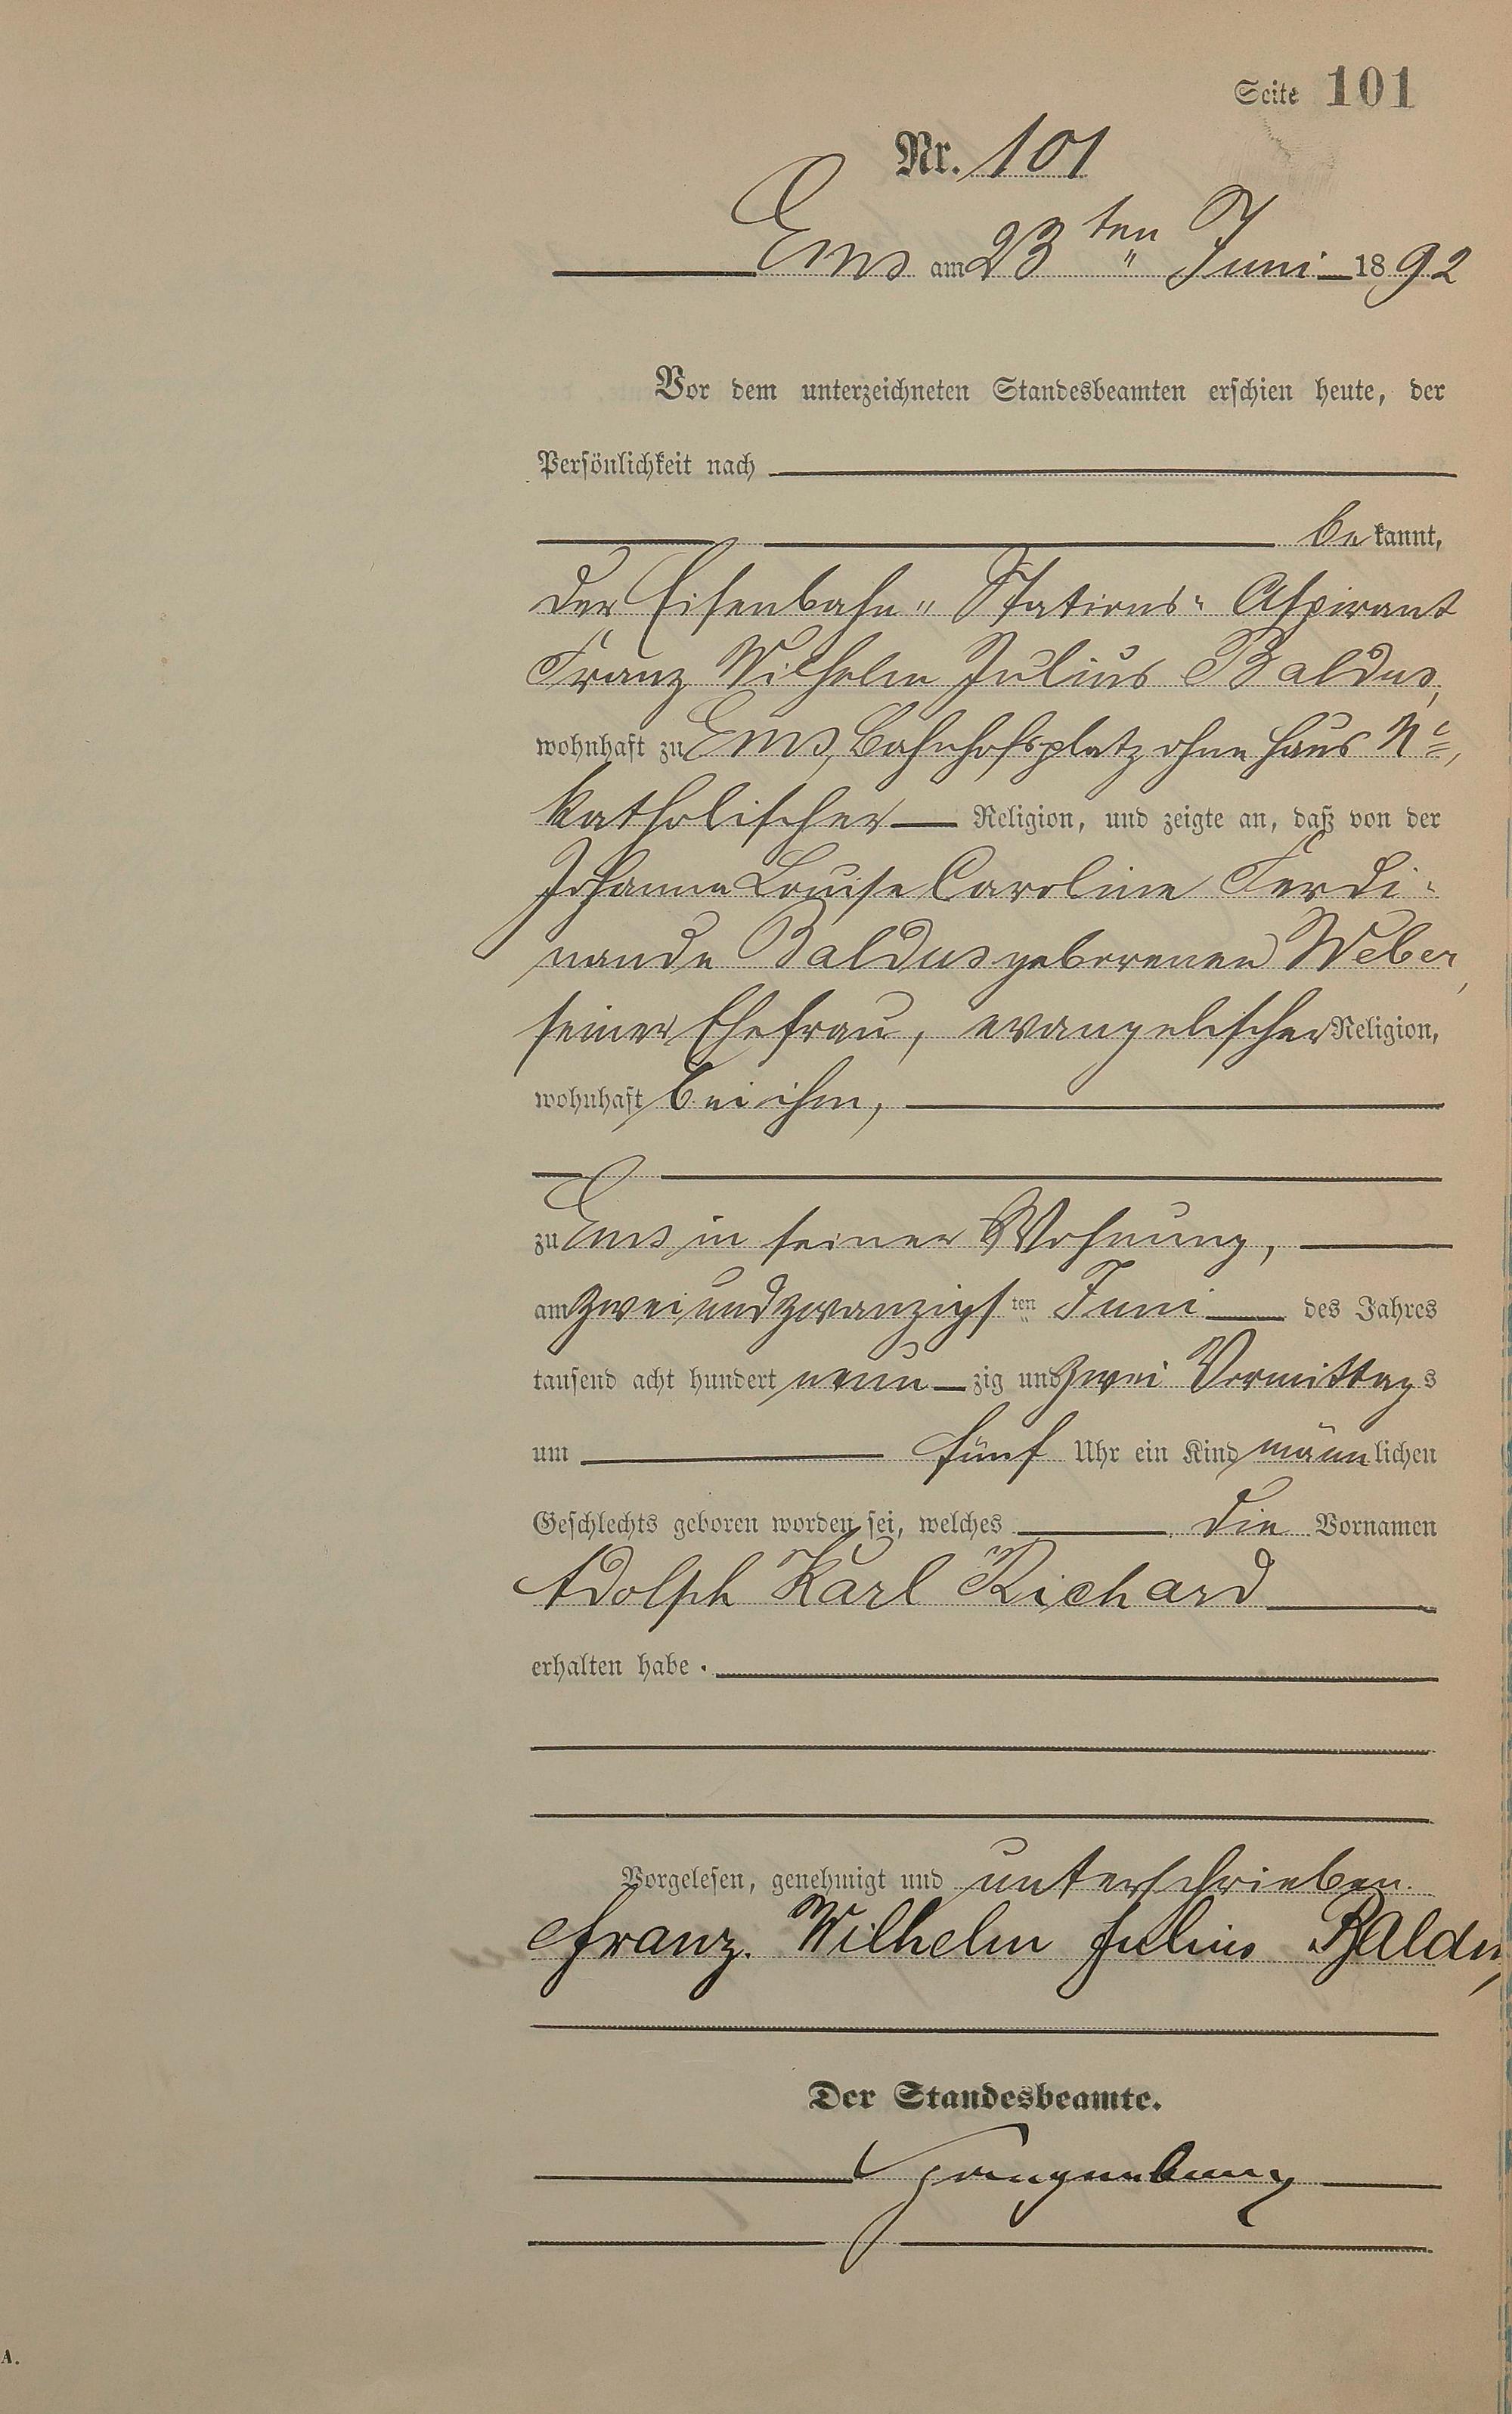 Seite 101
Nr. 101
Ems am 23ten Juni 1892
Vor dem unterzeichneten Standesbeamten erschien heute, der
Persönlichkeit nach
bekannt,
der Eisenbahn-Stations-Aspirant
Franz Wilhelm Julius Baldus,
wohnhaft zu Ems, Bahnhofsplatz ohne Haus No,
katholischer Religion, und zeigte an, daß von der
Johanna Louise Caroline Ferdi-
nande Baldus geborenen Weber,
seiner Ehefrau, evangelischer Religion,
wohnhaft bei ihm,
zu Ems in seiner Wohnung,
am zwei und zwanzigsten Juni des Jahres
tausend acht hundert neunzig und zwei Vormittags
um fünf Uhr ein Kind männlichen
Geschlechts geboren worden sei, welches die Vornamen
Adolph Karl Richard
erhalten habe.
Vorgelesen, genehmigt und unterschrieben.
Franz Wilhelm Julius Baldus
Der Standesbeamte.
A.